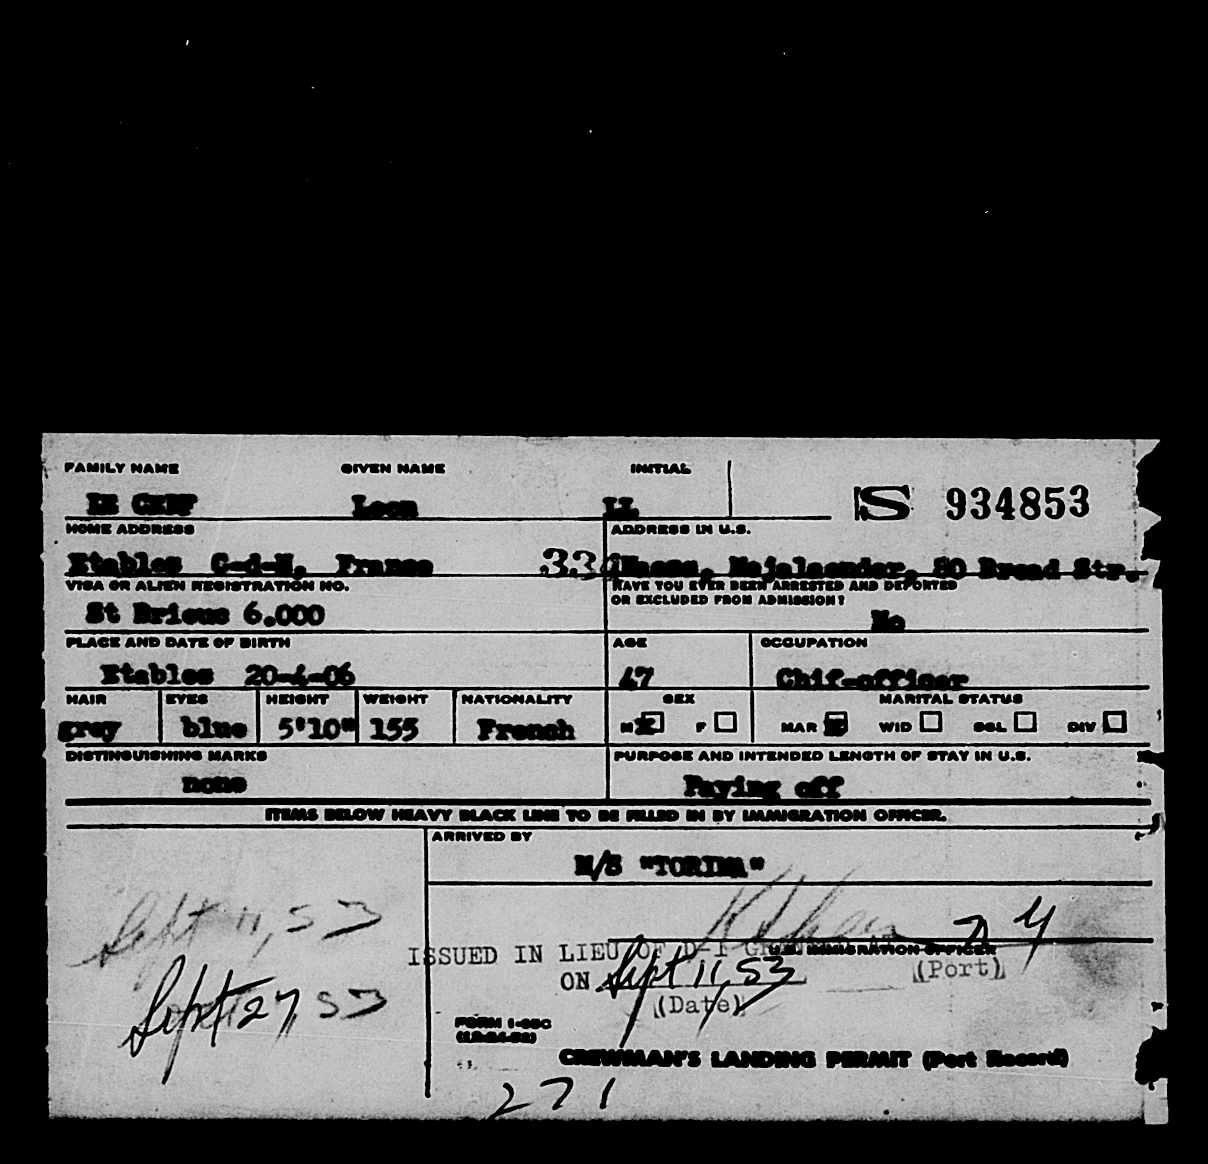 FAMILY NAME GIVEN NAME INITIAL
Leon LL S 934853
HOME ADDRESS ADDRESS IN U.S.
Etables C-d-N, France 80 Broad Str.
VISA OR ALIEN REGISTRATION NO. HAVE YOU EVER BEEN ARRESTED AND DEPORTED
OR EXCLUDED FROM ADMISSION?
St Brieuc 6.000 No
PLACE AND DATE OF BIRTH AGE OCCUPATION
Etables 20-4-06 47 Chif-officer
HAIR EYES HEIGHT WEIGHT NATIONALITY SEX MARITAL STATUS
grey blue 5'10" 155 French M X F MAR X WID SGL DIV
DISTINGUISHING MARKS PURPOSE AND INTENDED LENGTH OF STAY IN U.S.
none Paying off
ITEMS BELOW HEAVY BLACK LINE TO BE FILLED IN BY IMMIGRATION OFFICER.
ARRIVED BY
M/S
Sept 11, 53
N Y
U.S. IMMIGRATION OFFICER
ISSUED IN LIEU OF D-1
(Port)
ON Sept 11, 53
(Date)
Sept 27, 53
FORM I-95C
CREWMAN'S LANDING PERMIT (Port Record)
271